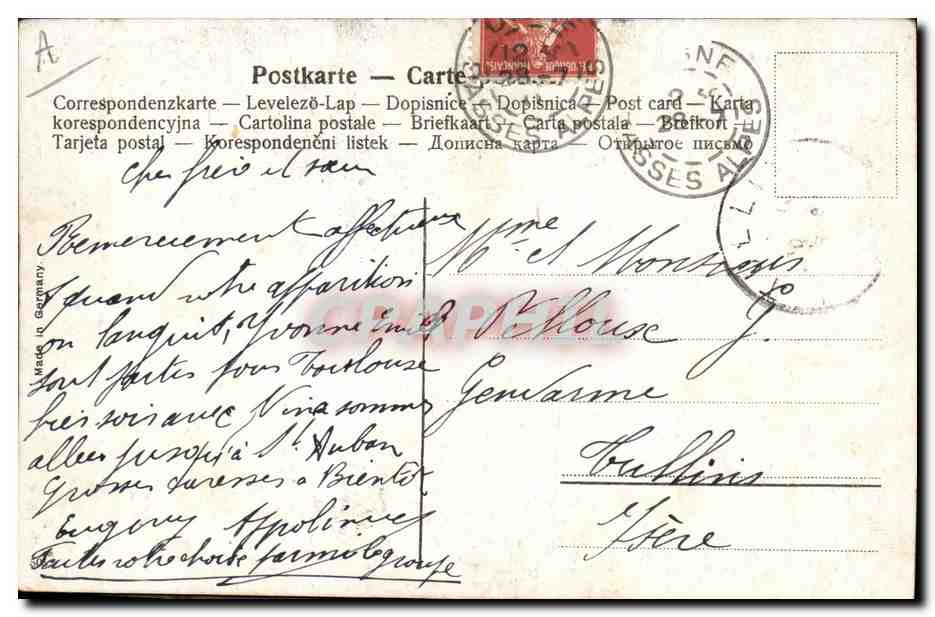 A
Postkarte — Carte
Correspondenzkarte — Levelező-Lap — Dopisnice — Dopisnica — Post card — Karta
korespondencyjna — Cartolina postale — Briefkaart — Carta postala — Brefkort —
Tarjeta postal — Korespondenční listek — Дописна карта — Открытое письмо
BASSES ALPES
28 - 7
BASSES ALPES
28 - 7
Cher frère et sœur
Remerciement affectueux
quand votre apparition
on languit, Yvonne Emile
sont partis pour Toulouse
hier soir avec Nina sommes
allés jusqu'à St Auban
Grosses caresses a Bientôt
Eugeny
Faites votre choix parmi le groupe
Mme et Monsieur
Velloux J.
Gendarme
Tullins
Isère
Made in Germany
CPAPHIL